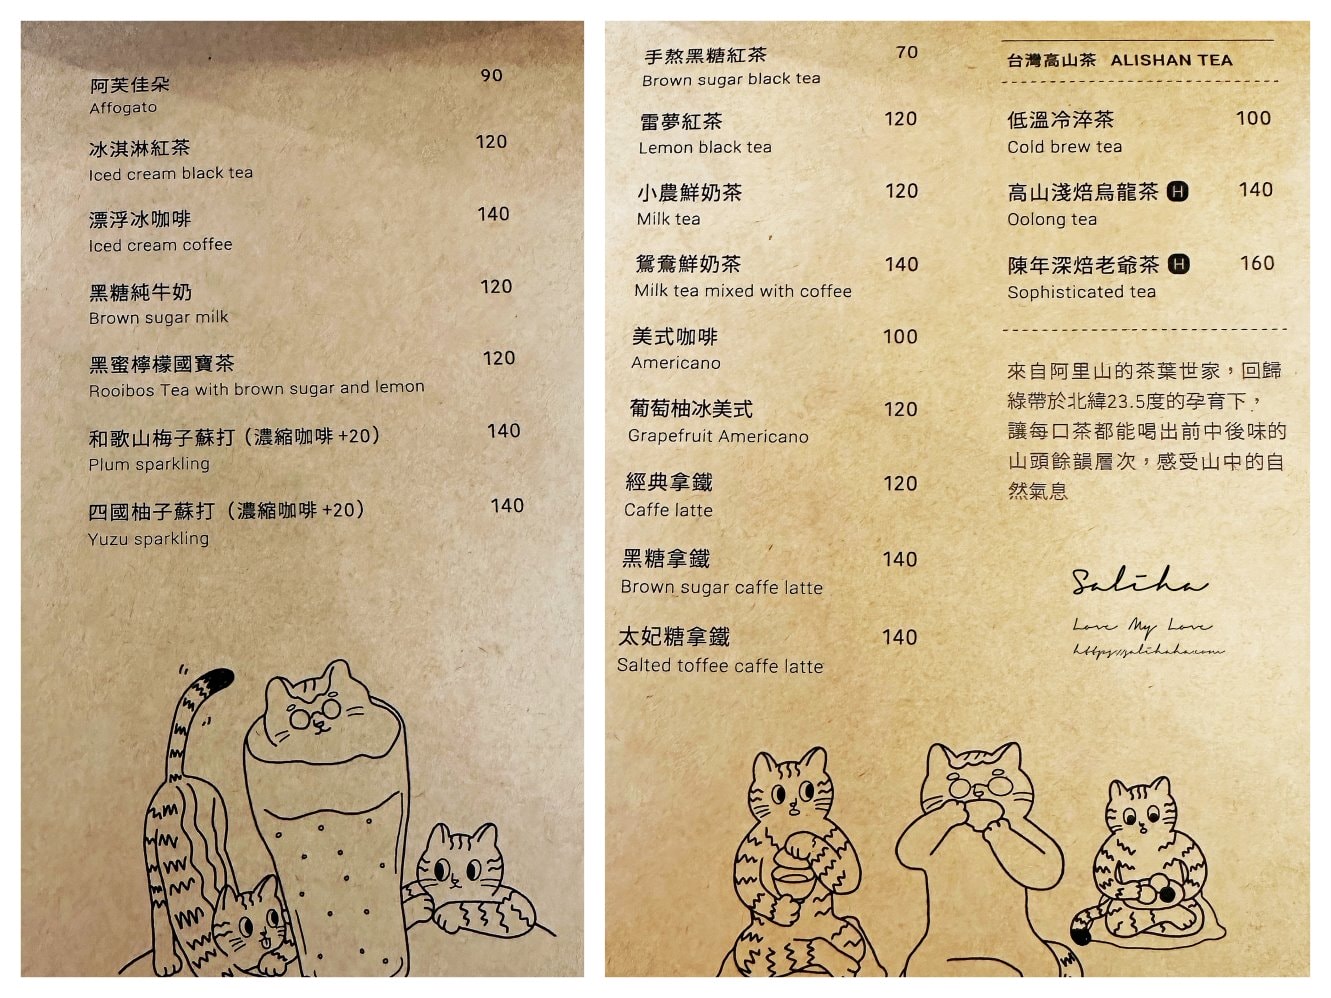 阿芙佳朵 90
Affogato
冰淇淋紅茶 120
Iced cream black tea
漂浮冰咖啡 140
Iced cream coffee
黑糖純牛奶 120
Brown sugar milk
黑蜜檸檬國寶茶 120
Rooibos Tea with brown sugar and lemon
和歌山梅子蘇打（濃縮咖啡 +20） 140
Plum sparkling
四國柚子蘇打（濃縮咖啡 +20） 140
Yuzu sparkling
手熬黑糖紅茶 70
Brown sugar black tea
雷夢紅茶 120
Lemon black tea
小農鮮奶茶 120
Milk tea
鴛鴦鮮奶茶 140
Milk tea mixed with coffee
美式咖啡 100
Americano
葡萄柚冰美式 120
Grapefruit Americano
經典拿鐵 120
Caffe latte
黑糖拿鐵 140
Brown sugar caffe latte
太妃糖拿鐵 140
Salted toffee caffe latte
台灣高山茶 ALISHAN TEA
低溫冷淬茶 100
Cold brew tea
高山淺焙烏龍茶 H 140
Oolong tea
陳年深焙老爺茶 H 160
Sophisticated tea
來自阿里山的茶葉世家，回歸
綠帶於北緯23.5度的孕育下，
讓每口茶都能喝出前中後味的
山頭餘韻層次，感受山中的自
然氣息
Saliha
Love My Love
https://salihaha.com